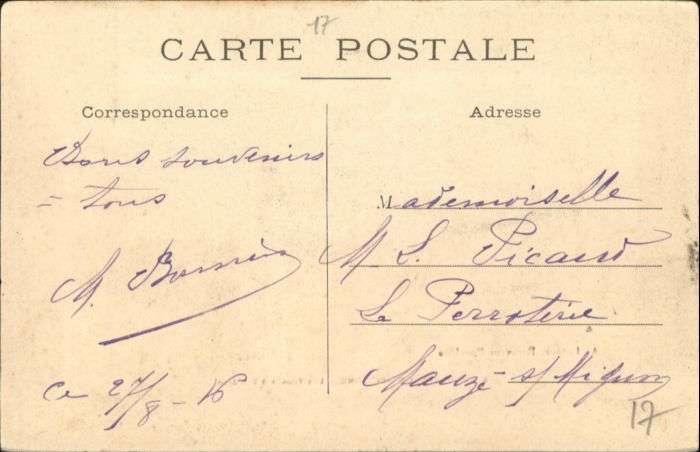 17
CARTE POSTALE
Correspondance
Bons souvenirs
à tous
M.
Ce 27/8 - 16
Adresse
Mademoiselle
M L. Picard
La Perroterie
Mauzé s/ Mignon
17